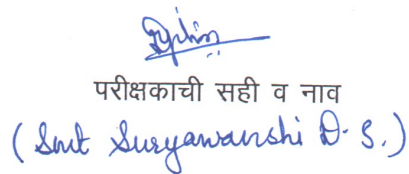 परीक्षकाची सही व नाव
(Smt Suryawanshi D. S.)